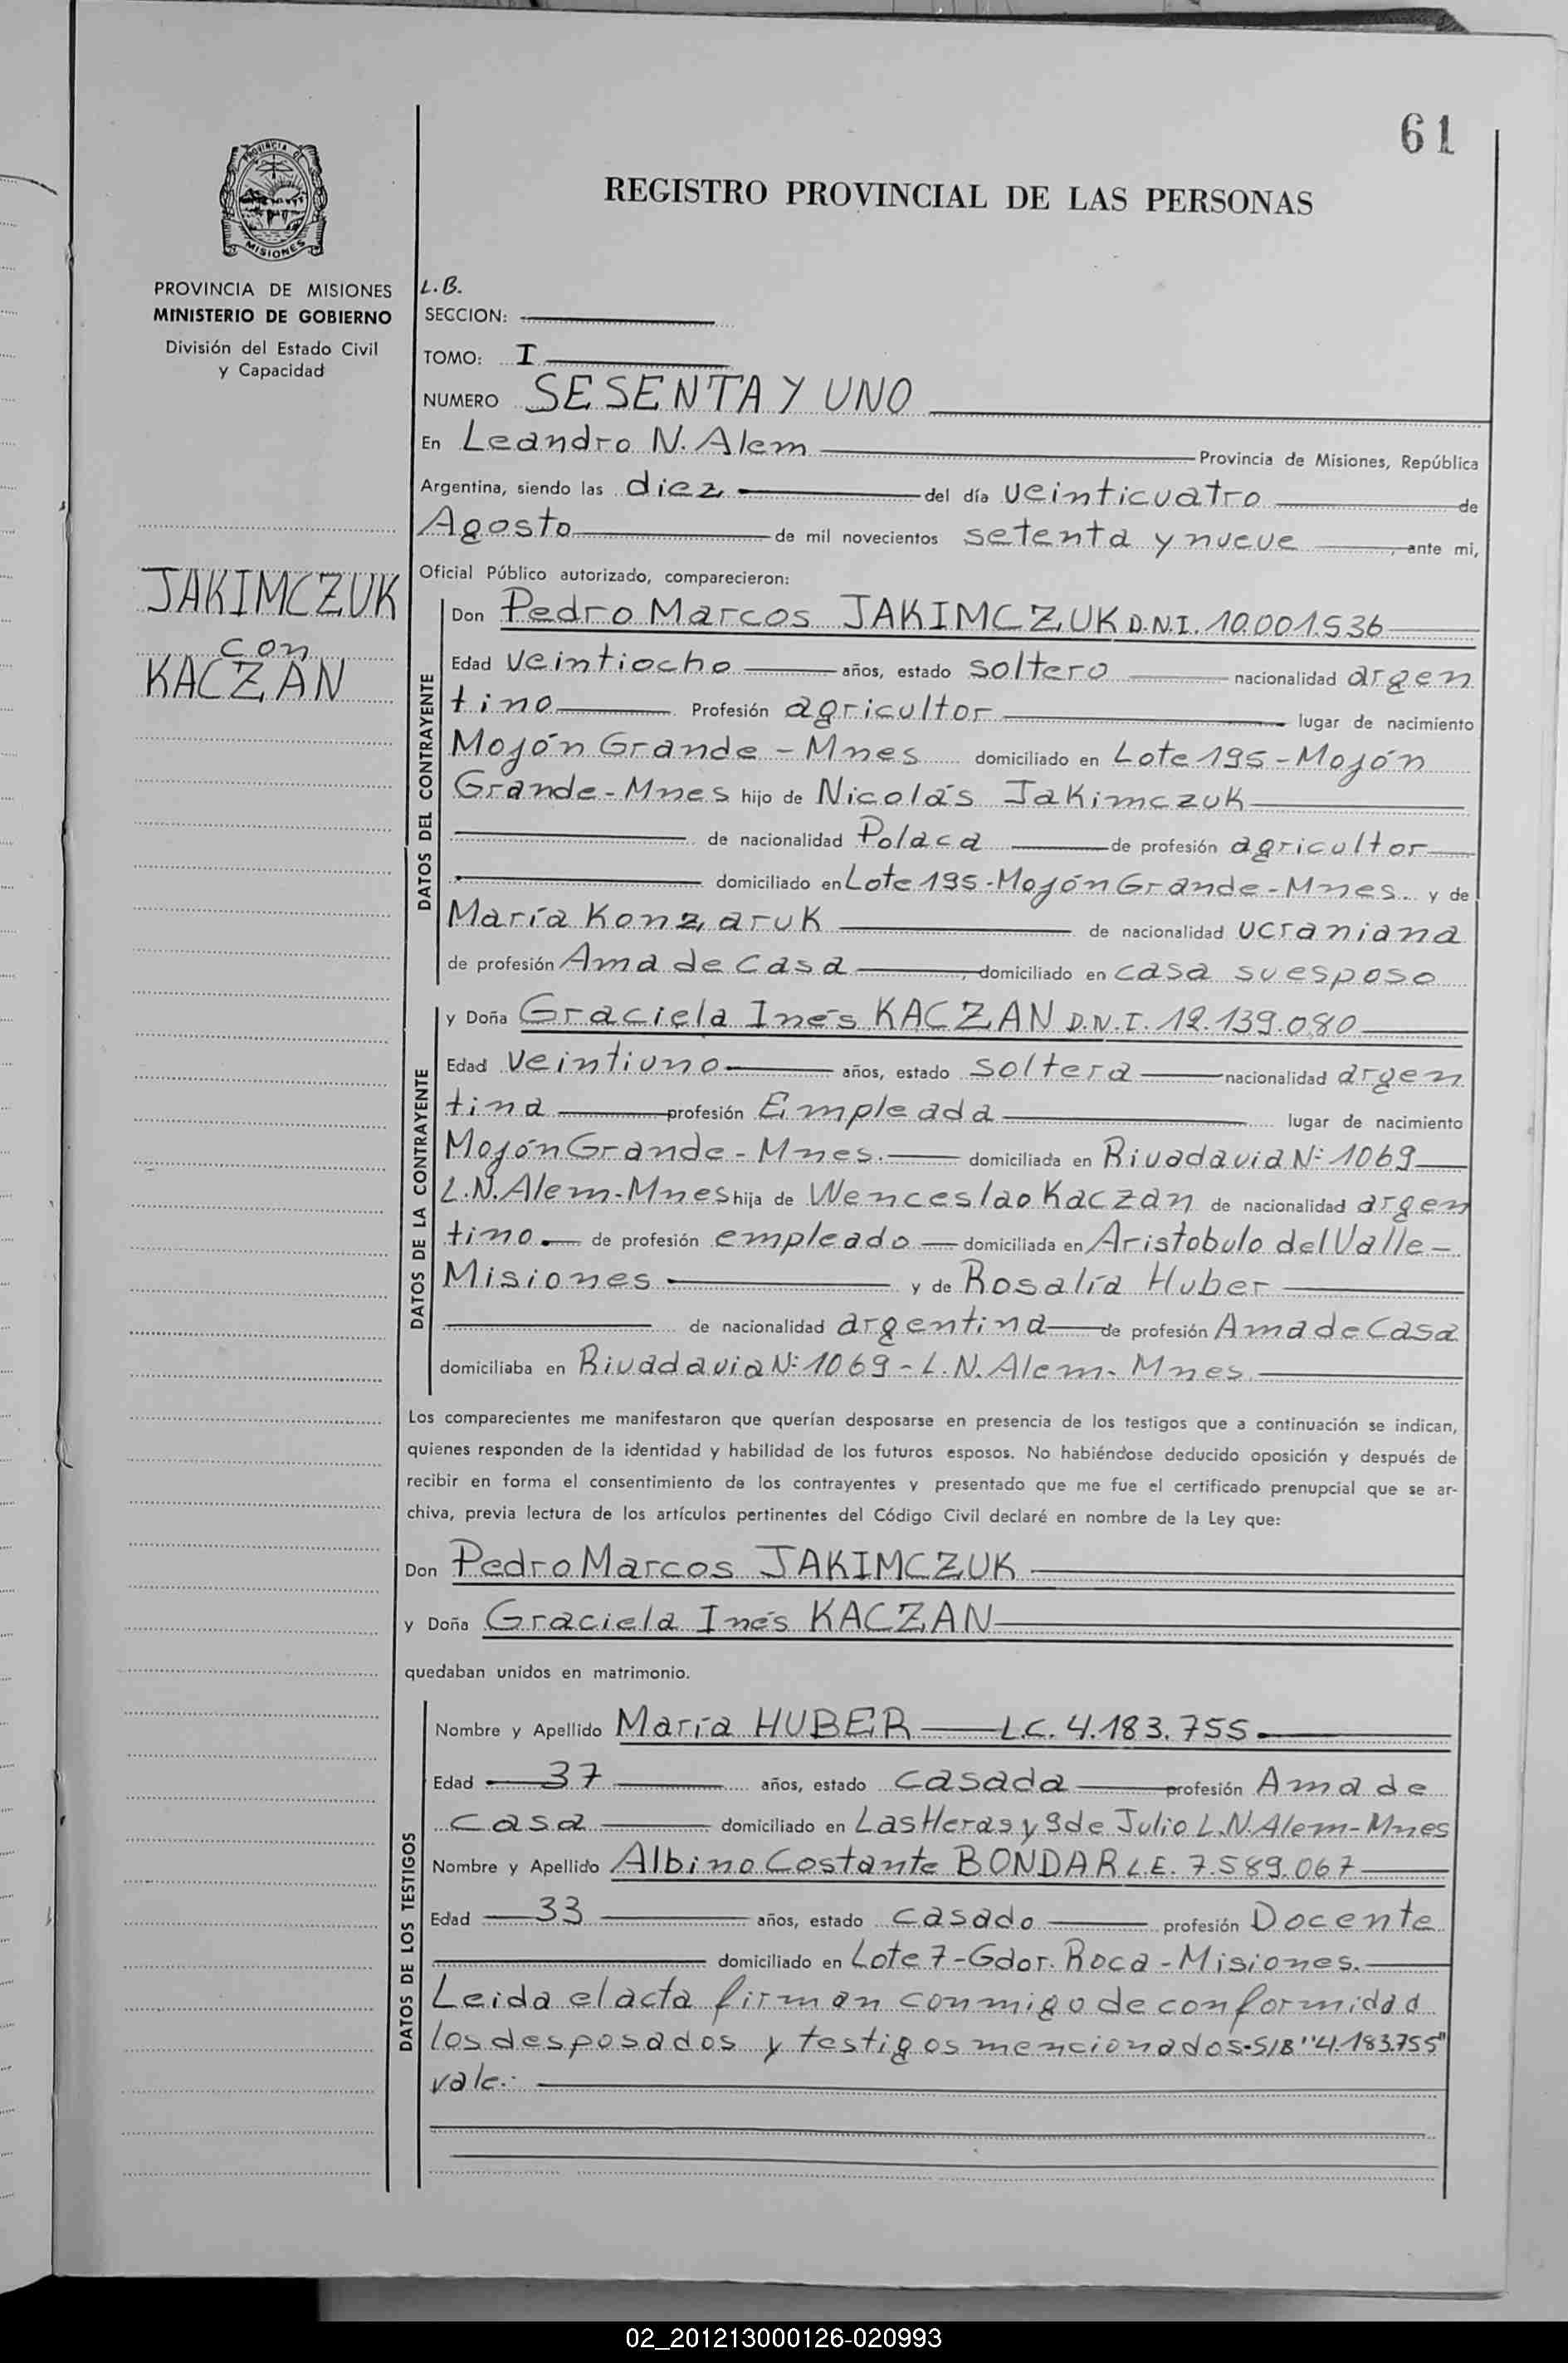 61
REGISTRO PROVINCIAL DE LAS PERSONAS
PROVINCIA DE
MISIONES
PROVINCIA DE MISIONES
MINISTERIO DE GOBIERNO
División del Estado Civil
y Capacidad
JAKIMCZUK
con
KACZAN
L.B.
SECCION:
TOMO: I
NUMERO SESENTA Y UNO
En Leandro N. Alem Provincia de Misiones, República
Argentina, siendo las diez del día veinticuatro de
Agosto de mil novecientos setenta y nueve, ante mi,
Oficial Público autorizado, comparecieron:
DATOS DEL CONTRAYENTE
Don Pedro Marcos JAKIMCZUK D.N.I. 10.001.536
Edad veintiocho años, estado soltero nacionalidad argen
tino Profesión agricultor lugar de nacimiento
Mojón Grande - Mnes domiciliado en Lote 195 - Mojón
Grande - Mnes hijo de Nicolás Jakimczuk
de nacionalidad Polaca de profesión agricultor
domiciliado en Lote 195 - Mojón Grande - Mnes. y de
María Konzaruk de nacionalidad ucraniana
de profesión Ama de Casa, domiciliado en casa su esposo
DATOS DE LA CONTRAYENTE
y Doña Graciela Inés KACZAN D.N.I. 12.139.080
Edad veintiuno años, estado soltera nacionalidad argen
tina profesión Empleada lugar de nacimiento
Mojón Grande - Mnes. domiciliada en Rivadavia Nº 1069
L.N. Alem - Mnes hija de Wenceslao Kaczan de nacionalidad argen
tino. de profesión empleado domiciliada en Aristobulo del Valle -
Misiones y de Rosalía Huber
de nacionalidad argentina de profesión Ama de Casa
domiciliaba en Rivadavia Nº 1069 - L.N. Alem - Mnes
Los comparecientes me manifestaron que querían desposarse en presencia de los testigos que a continuación se indican,
quienes responden de la identidad y habilidad de los futuros esposos. No habiéndose deducido oposición y después de
recibir en forma el consentimiento de los contrayentes y presentado que me fue el certificado prenupcial que se ar-
chiva, previa lectura de los artículos pertinentes del Código Civil declaré en nombre de la Ley que:
Don Pedro Marcos JAKIMCZUK
y Doña Graciela Inés KACZAN
quedaban unidos en matrimonio.
DATOS DE LOS TESTIGOS
Nombre y Apellido María HUBER L.C. 4.183.755
Edad 37 años, estado casada profesión Ama de
casa domiciliado en Las Heras y 9 de Julio L.N. Alem - Mnes
Nombre y Apellido Albino Costante BONDAR L.E. 7.589.067
Edad 33 años, estado casado profesión Docente
domiciliado en Lote 7 - Gdor. Roca - Misiones.
Leida el acta firman conmigo de conformidad
los desposados y testigos mencionados - S/B "4.183.755"
vale.-
02_201213000126-020993